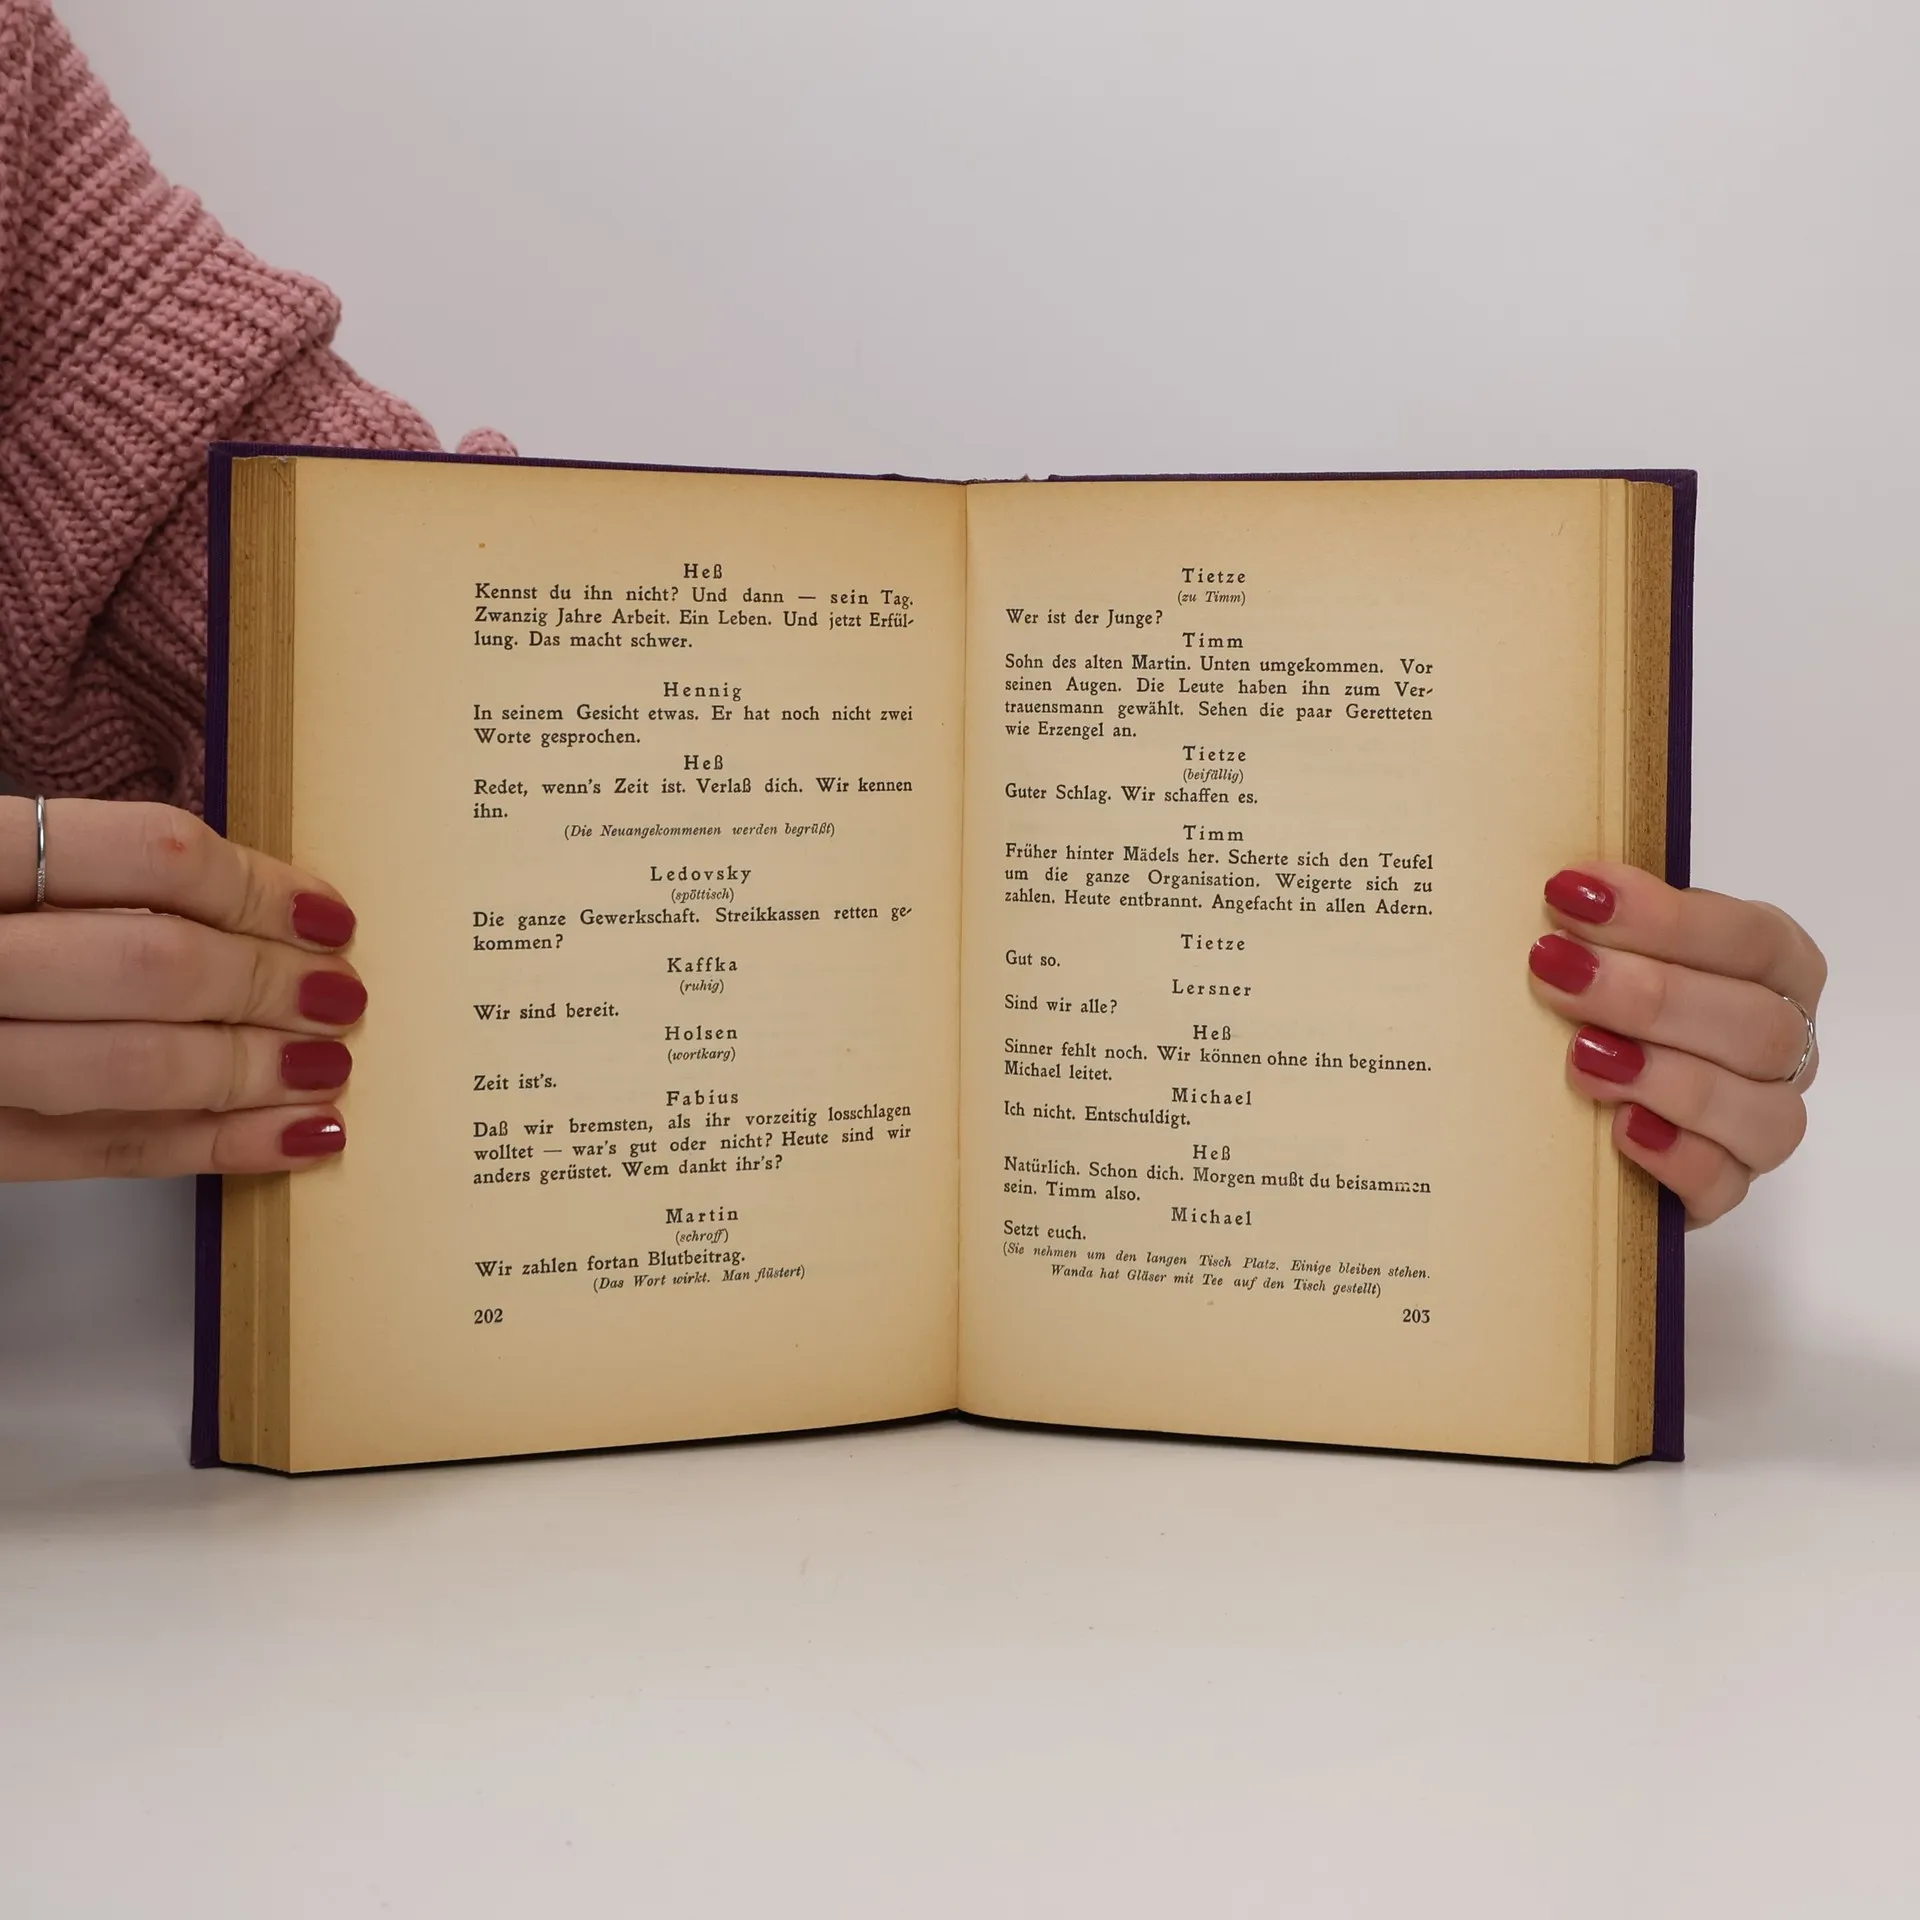 Heß
Kennst du ihn nicht? Und dann — sein Tag.
Zwanzig Jahre Arbeit. Ein Leben. Und jetzt Erfül-
lung. Das macht schwer.
Hennig
In seinem Gesicht etwas. Er hat noch nicht zwei
Worte gesprochen.
Heß
Redet, wenn's Zeit ist. Verlaß dich. Wir kennen
ihn.
(Die Neuangekommenen werden begrüßt)
Ledovsky
(spöttisch)
Die ganze Gewerkschaft. Streikkassen retten ge-
kommen?
Kaffka
(ruhig)
Wir sind bereit.
Holsen
(wortkarg)
Zeit ist's.
Fabius
Daß wir bremsten, als ihr vorzeitig losschlagen
wolltet — war's gut oder nicht? Heute sind wir
anders gerüstet. Wem dankt ihr's?
Martin
(schroff)
Wir zahlen fortan Blutbeitrag.
(Das Wort wirkt. Man flüstert)
202
Tietze
(zu Timm)
Wer ist der Junge?
Timm
Sohn des alten Martin. Unten umgekommen. Vor
seinen Augen. Die Leute haben ihn zum Ver-
trauensmann gewählt. Sehen die paar Geretteten
wie Erzengel an.
Tietze
(beifällig)
Guter Schlag. Wir schaffen es.
Timm
Früher hinter Mädels her. Scherte sich den Teufel
um die ganze Organisation. Weigerte sich zu
zahlen. Heute entbrannt. Angefacht in allen Adern.
Tietze
Gut so.
Lersner
Sind wir alle?
Heß
Sinner fehlt noch. Wir können ohne ihn beginnen.
Michael leitet.
Michael
Ich nicht. Entschuldigt.
Heß
Natürlich. Schon dich. Morgen mußt du beisammen
sein. Timm also.
Michael
Setzt euch.
(Sie nehmen um den langen Tisch Platz. Einige bleiben stehen.
Wanda hat Gläser mit Tee auf den Tisch gestellt)
203